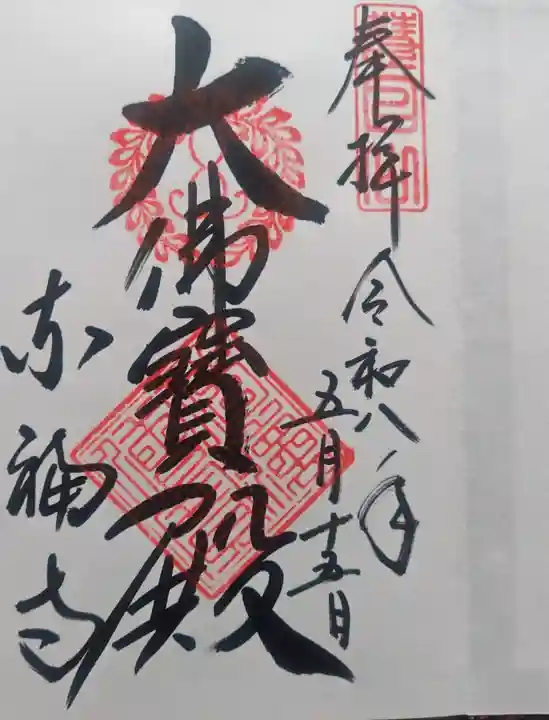 奉拝
令和八年
五月十五日
大佛寳殿
東福寺